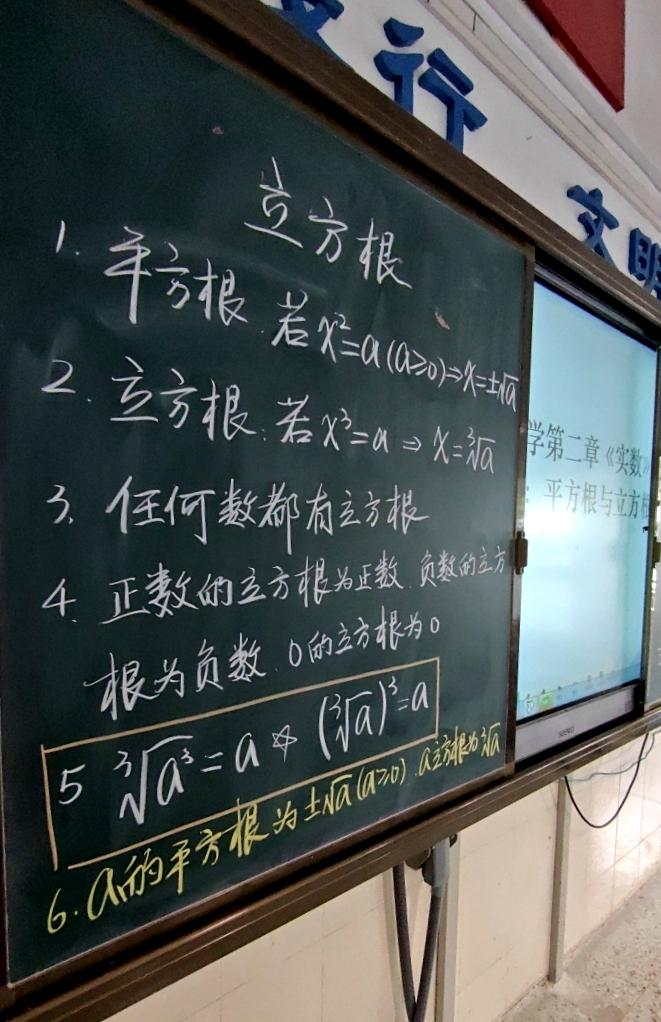 行
文明
立方根
1. 平方根 若x²=a(a≥0)⇒x=±√a
2. 立方根: 若x³=a ⇒ x=∛a
3. 任何数都有立方根
4. 正数的立方根为正数. 负数的立方
根为负数. 0的立方根为0
5 ∛a³=a ☆ (∛a)³=a
6. a的平方根为±√a(a≥0). a立方根为∛a
学第二章《实数》
: 平方根与立方